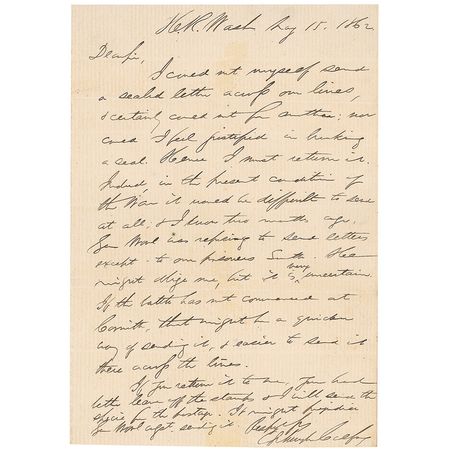 H.R. Wash May 15. 1862
Dear Sir,
I could not myself send
a sealed letter across our lines,
& certainly could not for another; nor
could I feel justified in breaking
a seal. Hence I must return it.
Indeed, in the present condition of
the War it would be difficult to send
at all, & I know two months ago
Gen Wool was refusing to send letters
except to our prisoners South. He
might oblige me, but it is very uncertain.
If the battle has not commenced at
Corinth, that might be a quicker
way of sending it, & easier to send it
there across the lines.
If you return it to me, you had
better leave off the stamps & I will send the
specie for the postage. It might prejudice
Gen Wool agst. sending it. Respectfully
Schuyler Colfax